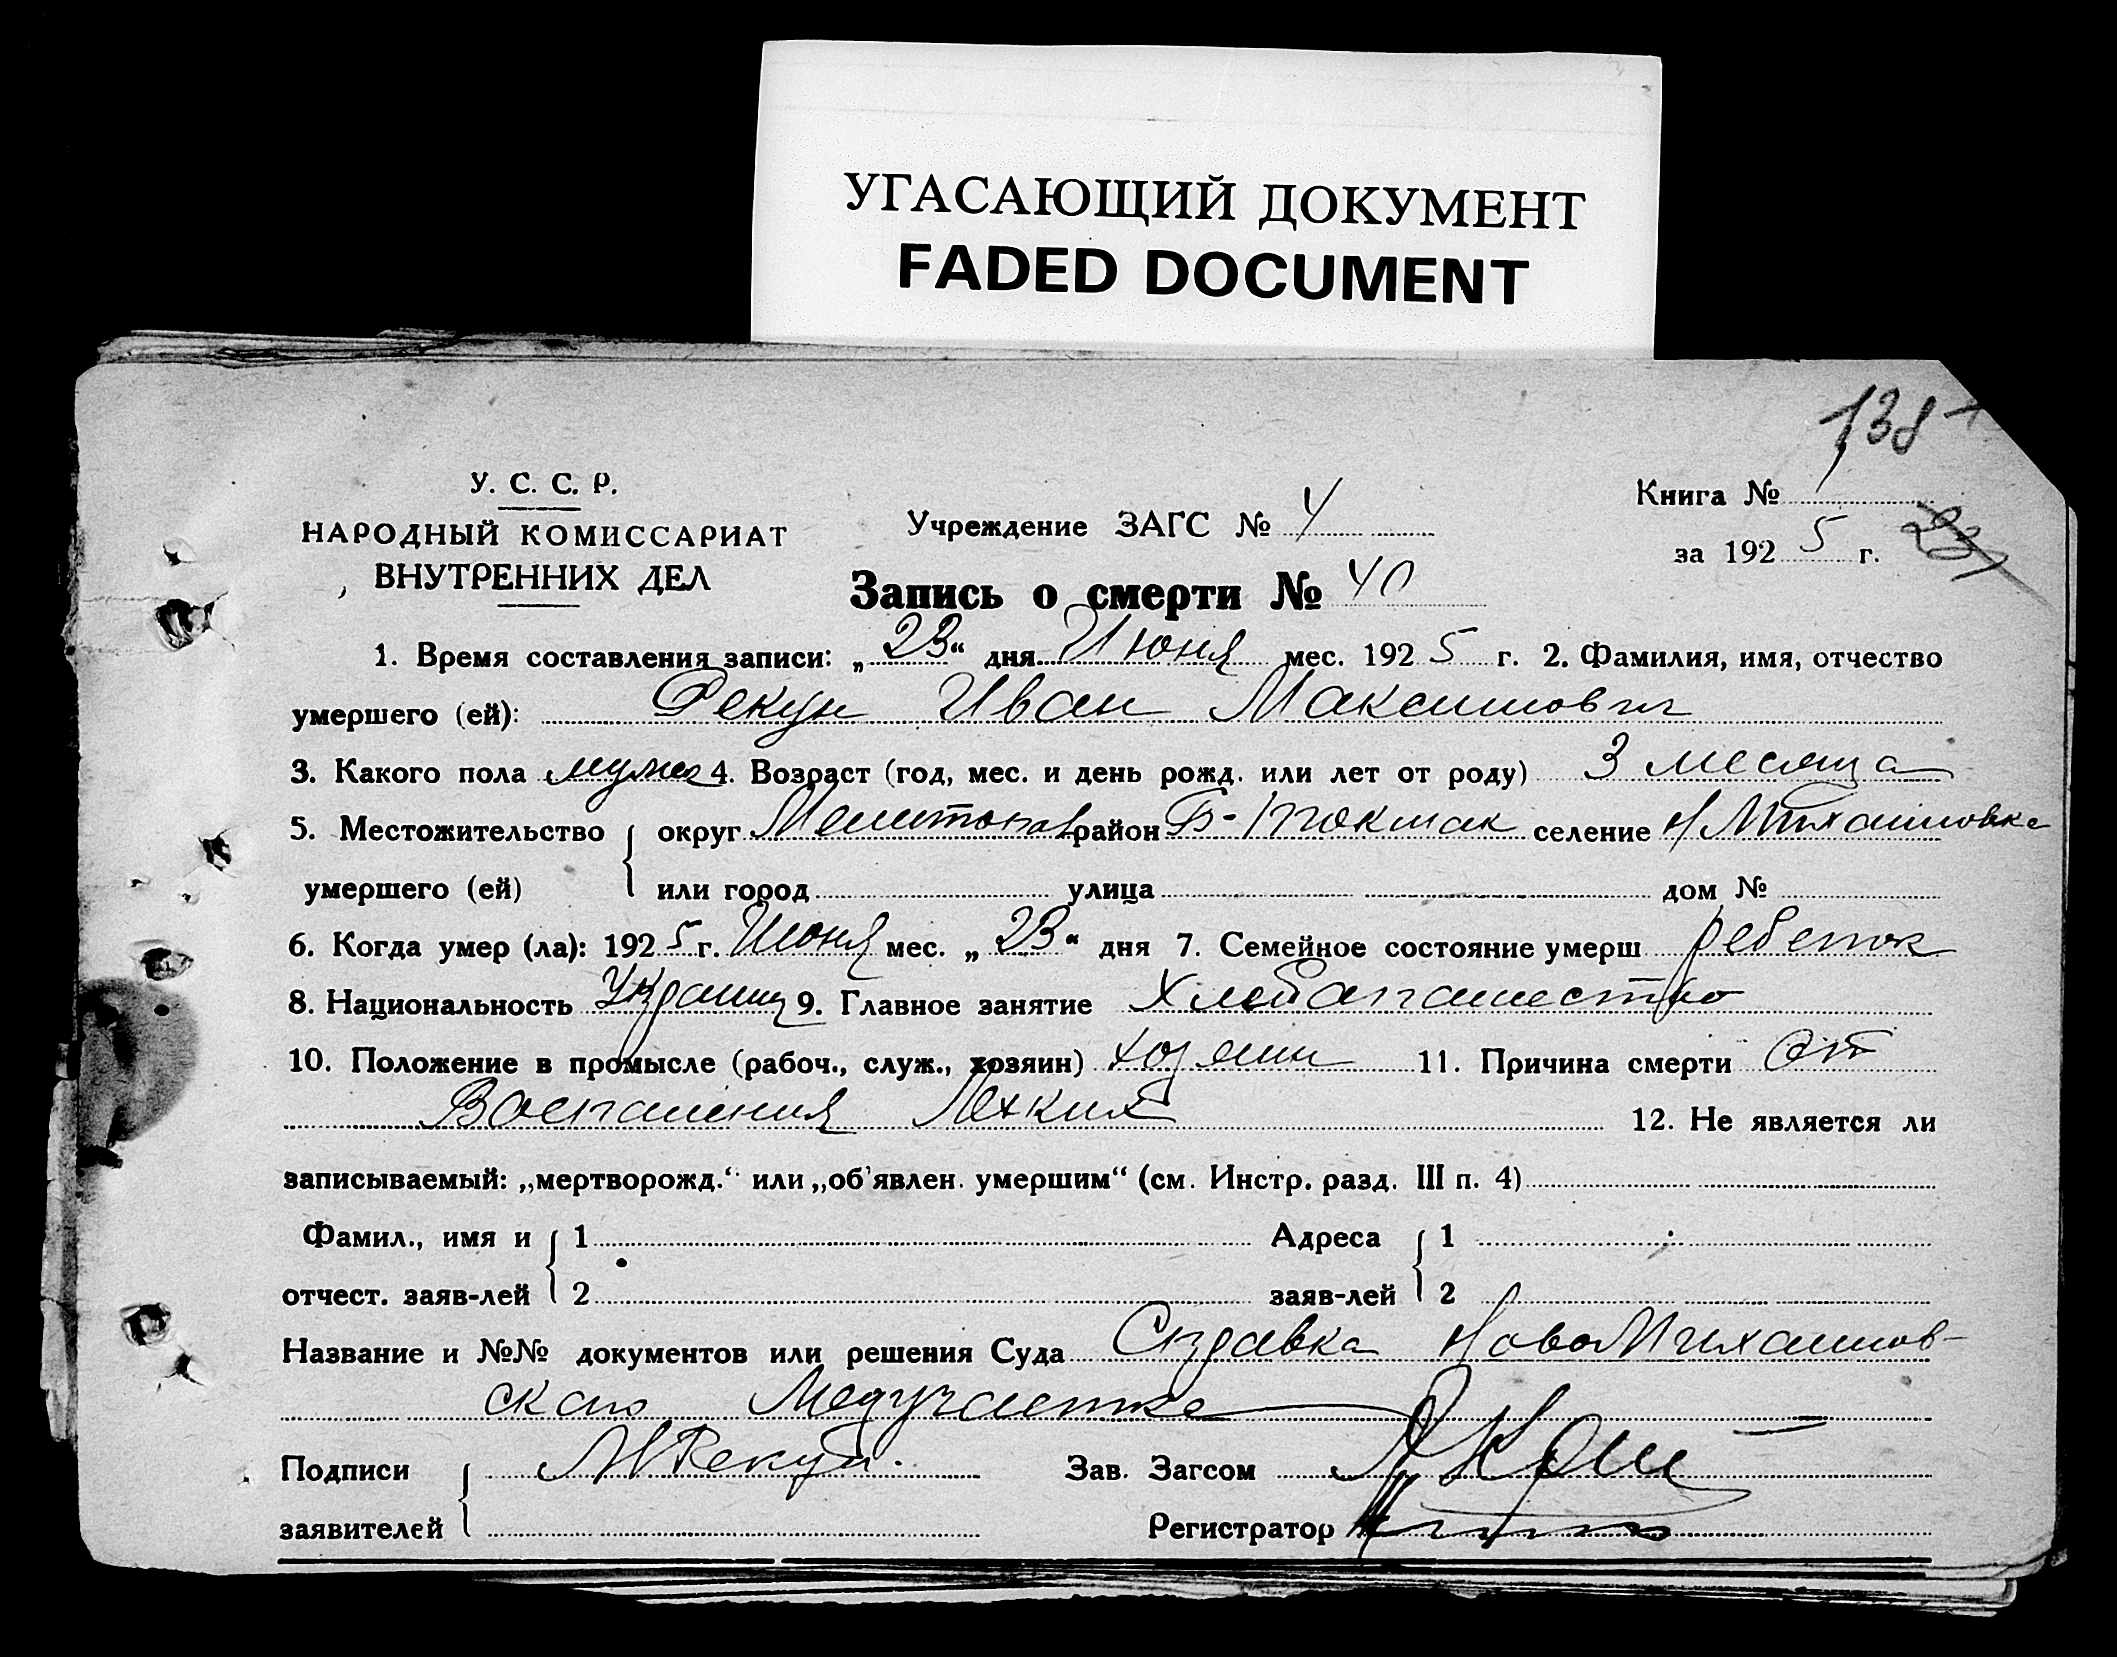 УГАСАЮЩИЙ ДОКУМЕНТ
FADED DOCUMENT
138
У. С. С. Р.
НАРОДНЫЙ КОМИССАРИАТ
ВНУТРЕННИХ ДЕЛ
Учреждение ЗАГС № 4
Книга №
за 1925 г. 231
Запись о смерти № 40
1. Время составления записи: „23“ дня Июня мес. 1925 г. 2. Фамилия, имя, отчество
умершего (ей): Рекун Иван Максимович
3. Какого пола мужск 4. Возраст (год, мес. и день рожд. или лет от роду) 3 месяца
5. Местожительство округ Мелитопол район Б-Токмак селение Н Михайловка
умершего (ей) или город улица дом №
6. Когда умер (ла): 1925 г. Июня мес. „23“ дня 7. Семейное состояние умерш ребенок
8. Национальность Украинц 9. Главное занятие Хлебопашество
10. Положение в промысле (рабоч., служ., хозяин) хозяин 11. Причина смерти От
Воспаления Лехких
12. Не является ли
записываемый: „мертворожд.“ или „об'явлен. умершим“ (см. Инстр. разд. III п. 4)
Фамил., имя и 1 Адреса 1
отчест. заяв-лей 2 заяв-лей 2
Название и №№ документов или решения Суда Справка НовоМихайлов-
скаго Медучастка
Подписи М Рекун. Зав. Загсом
заявителей Регистратор